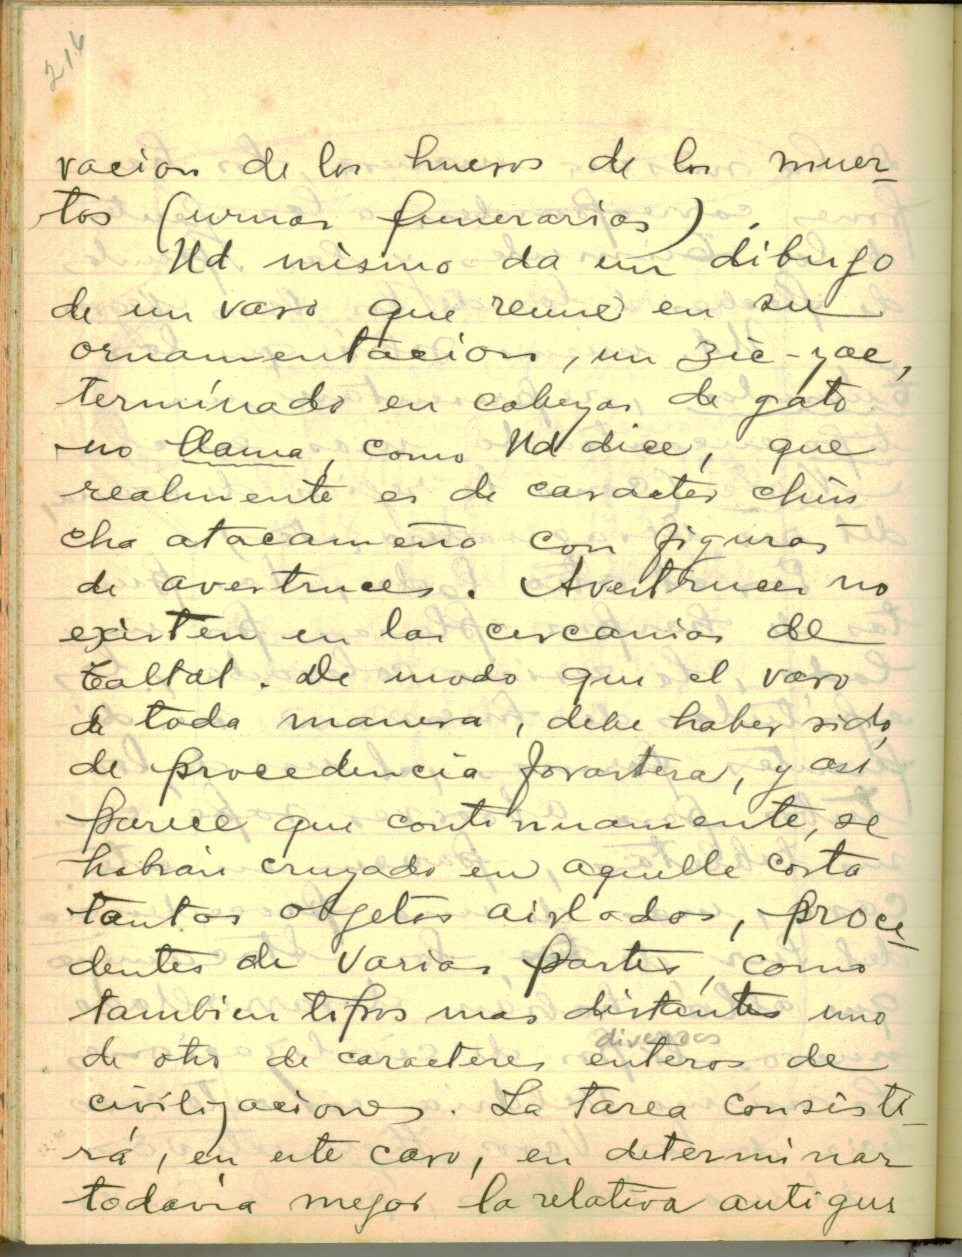 216
vacion de los huesos de los muer-
tos (urnas funerarias).
Ud mismo da un dibujo
de un vaso que reune en su
ornamentacion, un zic-zac,
terminado en cabezas de gato
no llama, como Ud dice, que
realmente es de caracter chin
cha atacameño con figuras
de avestruces. Avestruces no
existen en las cercanias de
Taltal. De modo que el vaso
de toda manera, debe haber sido,
de procedencia forastera, y asi
parece que continuamente, se
habran cruzado en aquella costa
tantos objetos aislados, proce-
dentes de varias partes, como
tambien tipos mas distantes uno
diversos
de otro de caracteres enteros de
civilizaciones. La tarea consisti-
rá, en este caso, en determinar
todavia mejor la relativa antigue